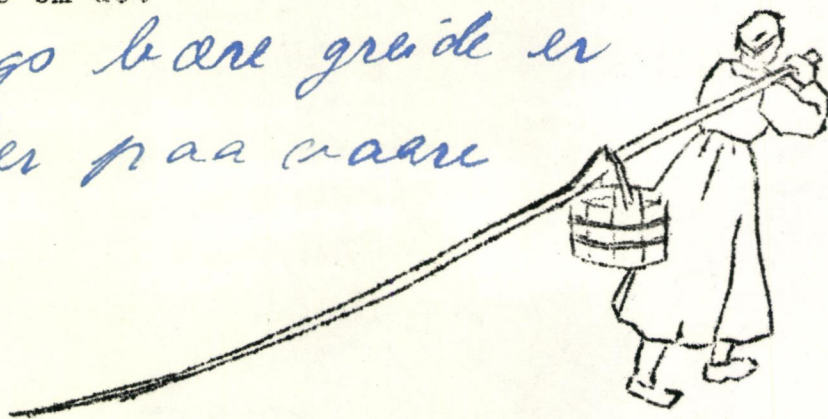 gs bære greide er
er paa vaare